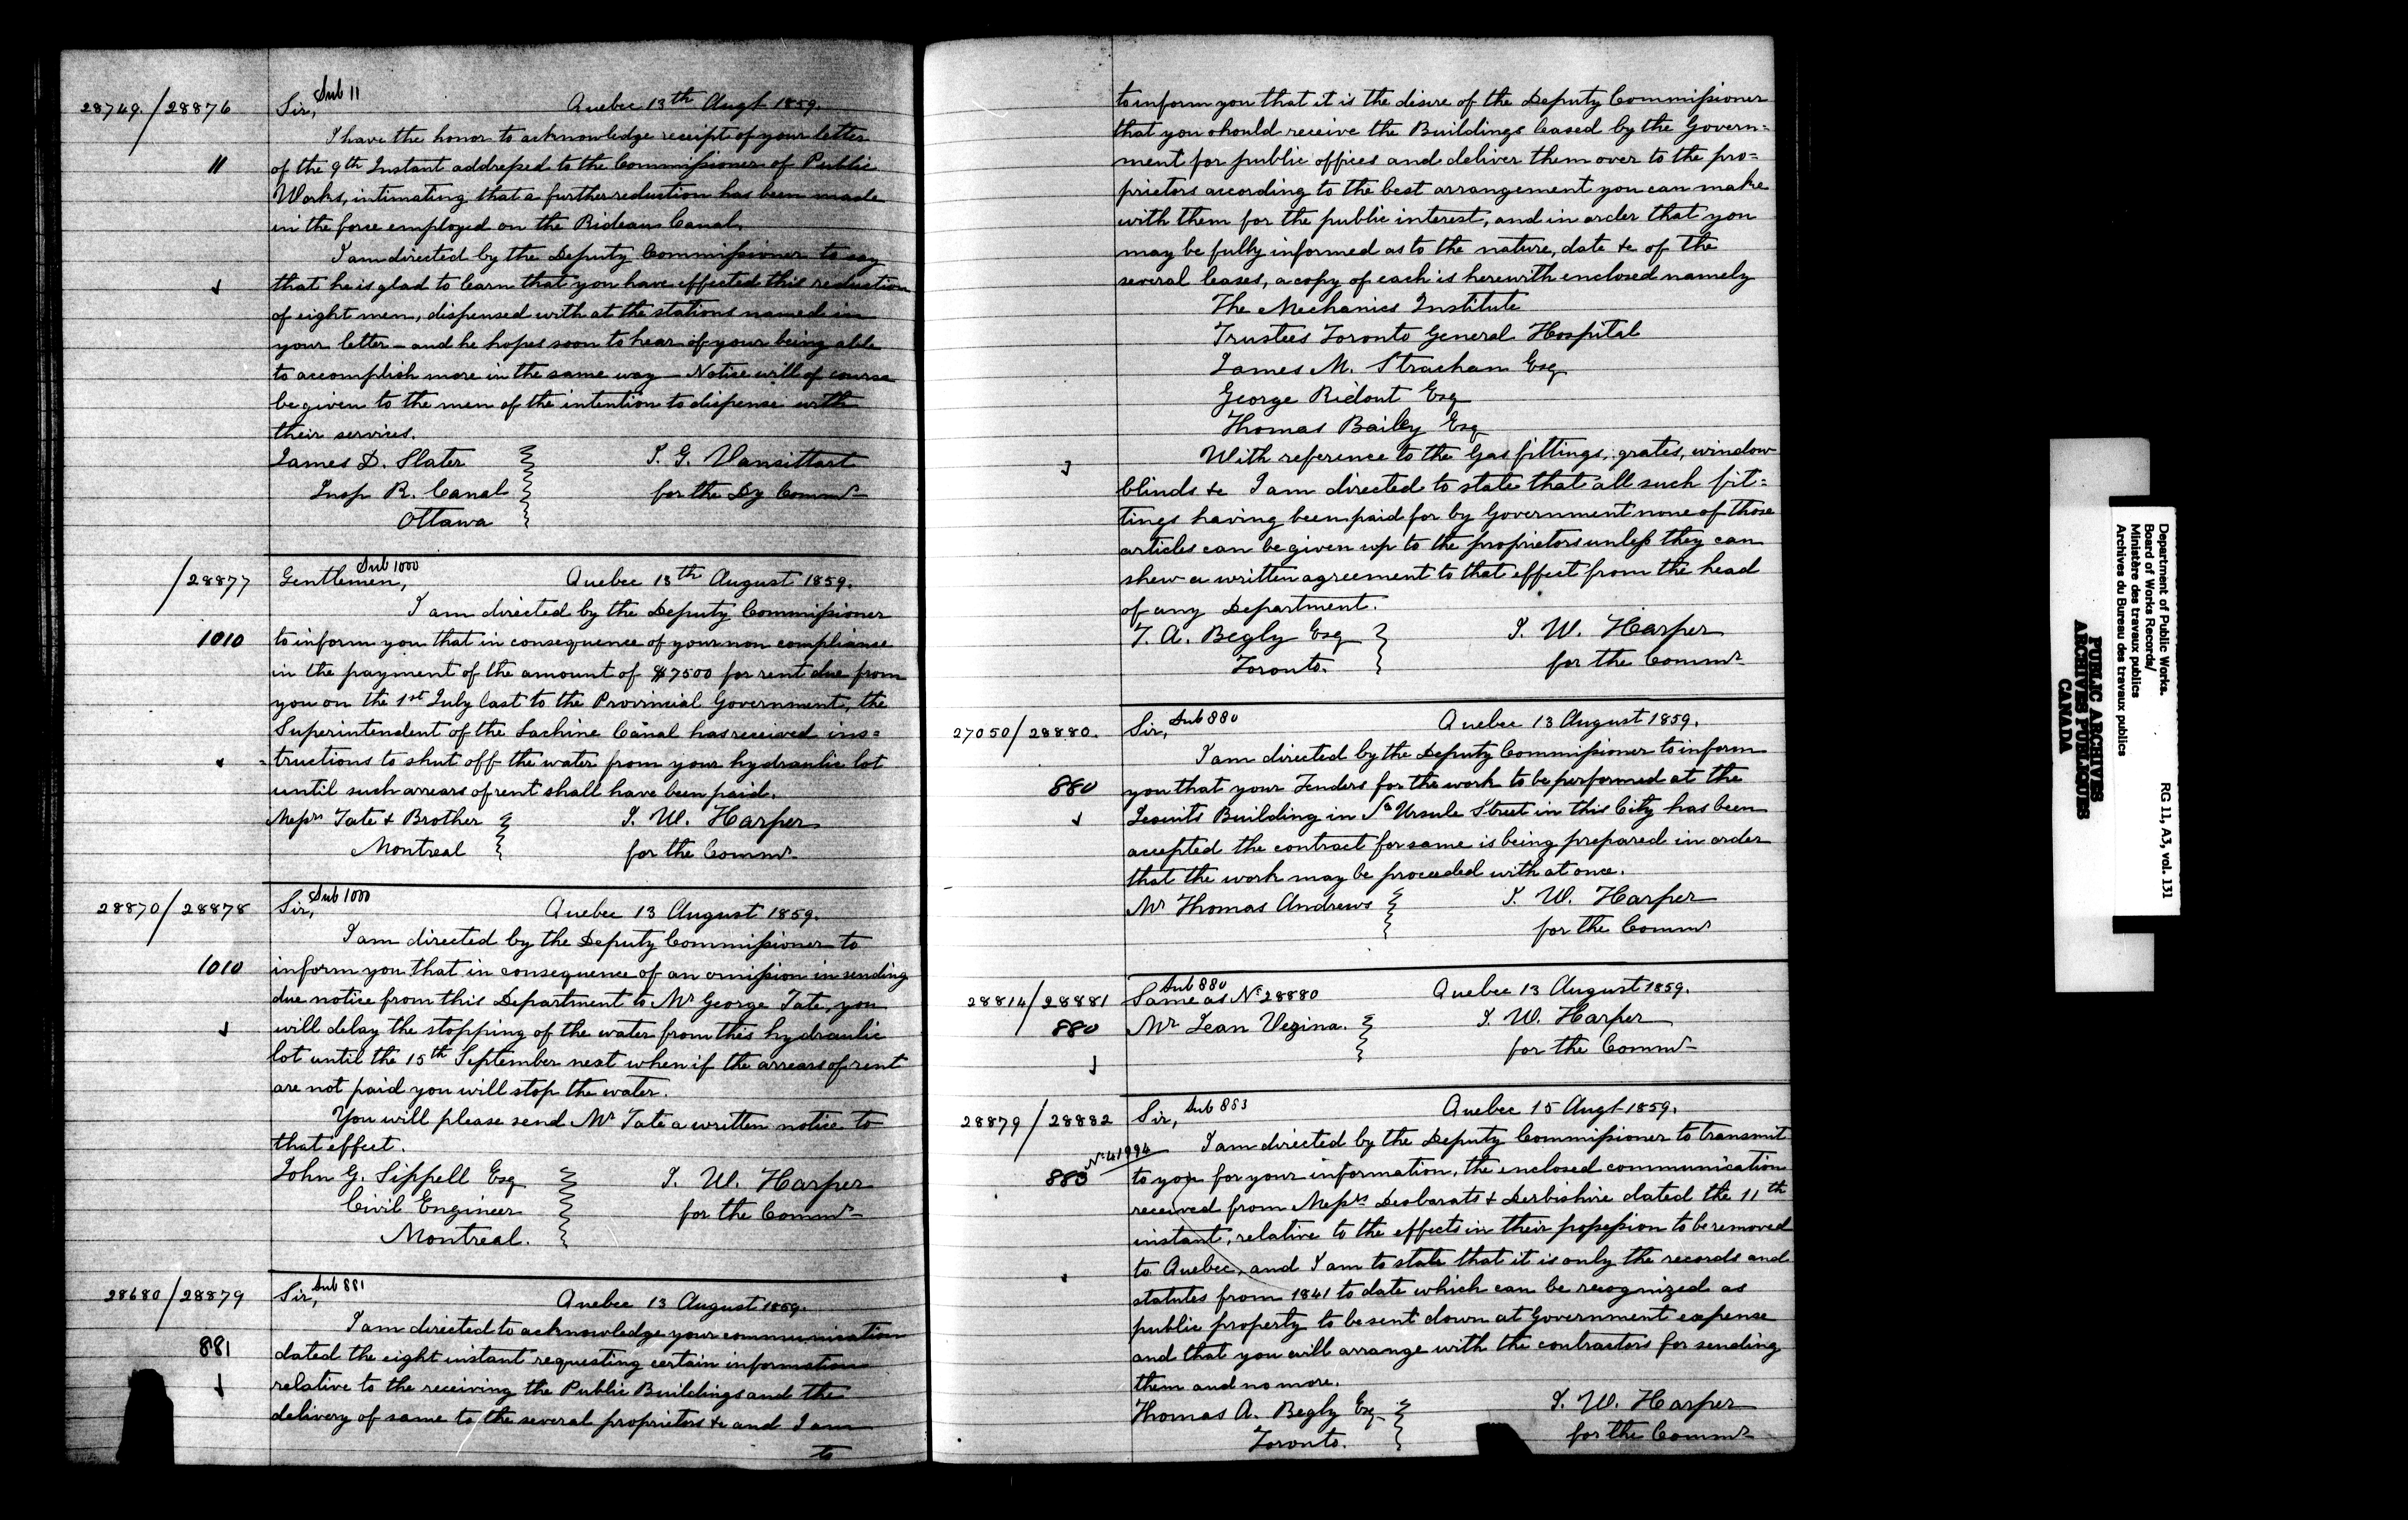 28749./28876
Sub 11
Sir,
Quebec 13th Augt 1859.
I have the honor to acknowledge receipt of your letter
11
of the 9th Instant addressed to the Commissioner of Public
Works, intimating that a further reduction has been made
in the force employed on the Rideau Canal.
I am directed by the Deputy Commissioner to say
that he is glad to learn that you have effected this reduction
of eight men, dispensed with at the stations named in
your letter – and he hopes soon to hear of your being able
to accomplish more in the same way – Notice will of course
be given to the men of the intention to dispense with
their services.
James D. Slater
T. G. Vansittart
Insp R. Canal
for the Dy Commr
Ottawa
/28877
Sub 1000
Gentlemen,
Quebec 13th August 1859.
I am directed by the Deputy Commissioner
1010
to inform you that in consequence of your non compliance
in the payment of the amount of $7500 for rent due from
you on the 1st July last to the Provincial Government, the
Superintendent of the Lachine Canal has received ins=
=tructions to shut off the water from your hydraulic lot
until such arrears of rent shall have been paid.
Messrs Tate & Brother
T. W. Harper
Montreal
for the Commr
28870/28878
Sub 1000
Sir,
Quebec 13 August 1859.
I am directed by the Deputy Commissioner to
1010
inform you that in consequence of an omission in sending
due notice from this Department to Mr George Tate, you
will delay the stopping of the water from this hydraulic
lot until the 15th September next when if the arrears of rent
are not paid you will stop the water.
You will please send Mr Tate a written notice to
that effect.
John G. Sippell Esq
T. W. Harper
Civil Engineer
for the Commr
Montreal.
28680/28879
Sub 881
Sir,
Quebec 13 August 1859.
I am directed to acknowledge your communication
881
dated the eight instant requesting certain information
relative to the receiving the Public Buildings and the
delivery of same to the several proprietors &c and I am
to
to inform you that it is the desire of the Deputy Commissioner
that you should receive the Buildings leased by the Govern=
ment for public offices and deliver them over to the pro=
prietors according to the best arrangement you can make
with them for the public interest, and in order that you
may be fully informed as to the nature, date &c of the
several leases, a copy of each is herewith enclosed namely
The Mechanics Institute
Trustees Toronto General Hospital
James M. Strachan Esq
George Ridout Esq
Thomas Bailey Esq
With reference to the Gas fittings, grates, window
blinds &c I am directed to state that all such fit=
tings having been paid for by Government none of those
articles can be given up to the proprietors unless they can
shew a written agreement to that effect from the head
of any Department.
T. A. Begly Esq
T. W. Harper
Toronto.
for the Commr
27050/28880.
Sub 880
Sir,
Quebec 13 August 1859.
I am directed by the Deputy Commissioner to inform
880
you that your Tenders for the work to be performed at the
Jesuits Building in St Ursule Street in this City has been
accepted the contract for same is being prepared in order
that the work may be proceeded with at once.
Mr Thomas Andrews
T. W. Harper
for the Commr
28814/28881
Sub 880
Same as No 28880
Quebec 13 August 1859.
880
Mr Jean Vezina.
T. W. Harper
for the Commr
28879/28882
Sub 883
Sir,
Quebec 15 Augt 1859.
I am directed by the Deputy Commissioner to transmit
No 41994
883
to you for your information, the enclosed communication
received from Messrs Desbarats & Derbishire dated the 11th
instant, relative to the effects in their possession to be removed
to Quebec, and I am to state that it is only the records and
statutes from 1841 to date which can be recognized as
public property to be sent down at Government expense
and that you will arrange with the contractors for sending
them and no more.
Thomas A. Begly Esq
T. W. Harper
Toronto.
for the Commr
Department of Public Works.
Board of Works Records/
Ministère des travaux publics
Archives du Bureau des travaux publics
RG 11, A3, vol. 131
PUBLIC ARCHIVES
ARCHIVES PUBLIQUES
CANADA